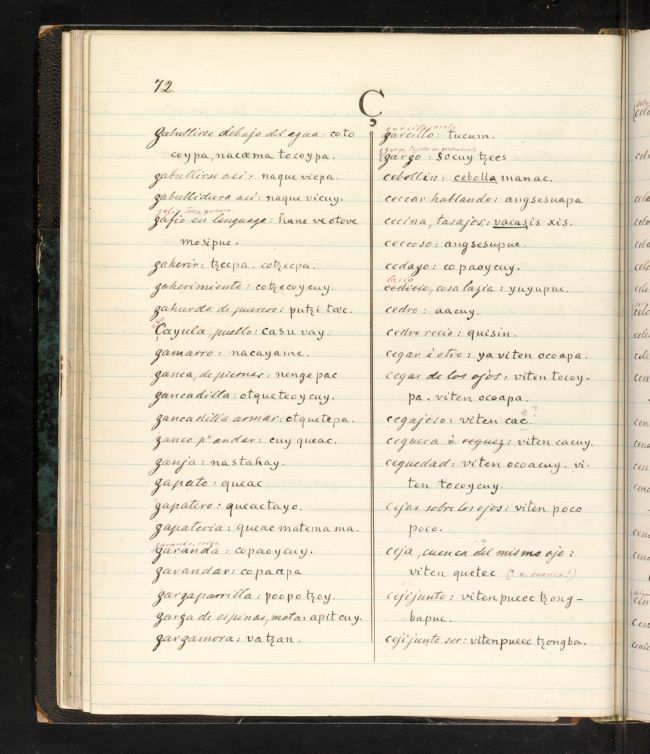 72
Ç
zabullirse debajo del agua: coto
coypa, nacæma tocoypa.
zabullirse así: naque vicpa.
zabullidura así: naque vicuy.
zafio en lenguage: hane veotove
mosipue.
zaherir: tzecpa. cotzecpa.
zaherimiento: cotzecoycuy.
zahurda de puercos: putzi tæc.
Çayula, pueblo: casu vay.
zamarro: nacayame.
zanca, de piernas: nengepac
zancadilla: otqueteoycuy.
zancadilla armar: otquetepa.
zanco pª andar: cuy queac.
zanja: nastahay.
zapato: queac
zapatero: queactayo.
zapatería: queac matemama.
zaranda: copaoycuy.
zarandar: copaapa
zarzaparrilla: poopo tzoy.
zarza de espinas, mata: apitcuy.
zarzamora: vatzan.
zarcillo: tucum.
zarzo: socuy tzees
cebollin: cebolla manac.
ceccar hablando: angsesuapa
cecina, tasajos: vacasis xis.
ceccoso: angsesupue.
cedazo: copaoycuy.
lacio
cedicio, cosa lazia: yuyupue.
cedro: aacuy.
cedro recio: quisin.
cegar à otro: ya viten ocoapa.
cegar de los ojos: viten tocoy-
pa. viten ocoapa.
cegajoso: viten cac.
ceguera à reguez: viten cacuy.
ceguedad: viten ocoacuy. vi-
ten tocoycuy.
cejas sobre los ojos: viten poco
poco.
ceja, cuenca del mismo ojo:
viten quetec (? v. cuenca!)
cejijunto: vitenpuecc tzong-
bapue.
cejijunto ser: vitenpuecc tzongba.